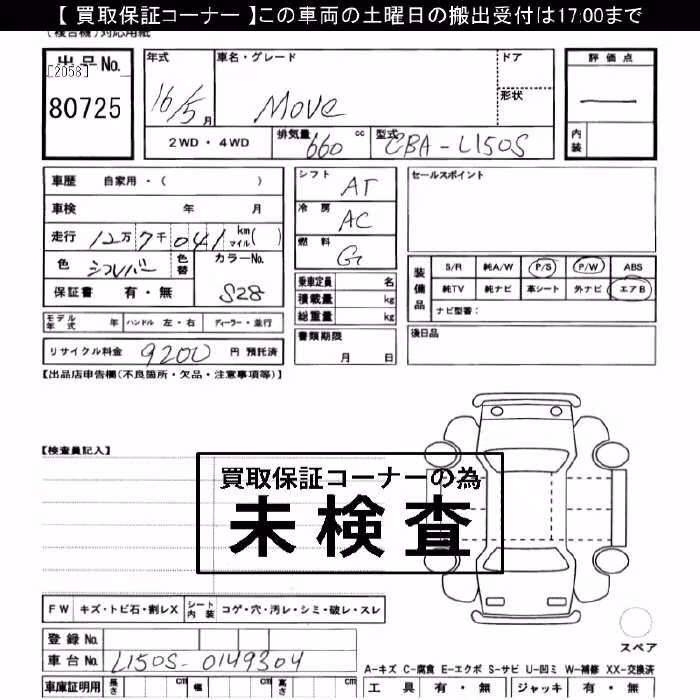 【 買取保証コーナー 】この車両の土曜日の搬出受付は17:00まで
(複合機)対応用紙
出品No.
[2058]
80725
年式
16/5月
車名・グレード
MOVE
ドア
形状
2WD・4WD
排気量 660 cc
型式 CBA-L150S
評価点
—
内装
車歴 自家用・( )
車検 年 月
走行 12万7千041 km マイル( )
色 シルバー 色替
カラーNo. S28
保証書 有・無
モデル年式 年 ハンドル 左・右 ディーラー・並行
リサイクル料金 9200 円 預託済
シフト AT
冷房 AC
燃料 G
乗車定員 名
積載量 kg
総重量 kg
書類期限
月 日
セールスポイント
装備品
S/R 純A/W P/S P/W ABS
純TV 純ナビ 革シート 外ナビ エアB
ナビ型番:
後日品
【出品店申告欄(不良箇所・欠品・注意事項等)】
【検査員記入】
買取保証コーナーの為
未検査
FW キズ・トビ石・割レX シート内装 コゲ・穴・汚レ・シミ・破レ・スレ
登録No.
車台No. L150S-0149304
車庫証明用 長さ cm 幅 cm 高さ cm
スペア
A-キズ C-腐食 E-エクボ S-サビ U-凹ミ W-補修 XX-交換済
工具 有・無 ジャッキ 有・無